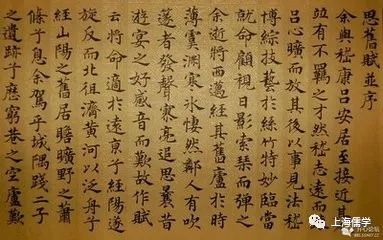 思舊賦並序
余與嵇康呂安居至接近
竝有不羈之才然嵇志遠而
呂心曠而放其後以事見法嵇
博綜技藝於絲竹特妙臨當
就命顧視日影索琴而彈之
余逝將西邁經其舊廬於時
薄虞淵寒氷悽然鄰人有吹
遂者發聲寥亮追思曩昔
遊宴之好感音而歎故作賦
云將命適於遠京子經陽遂
旋反而北徂濟黃河以泛舟子
經山陽之舊居瞻曠野之蕭
條子息余駕乎城隅踐二子
之遺跡子歷窮巷之空廬歎
上海儒学